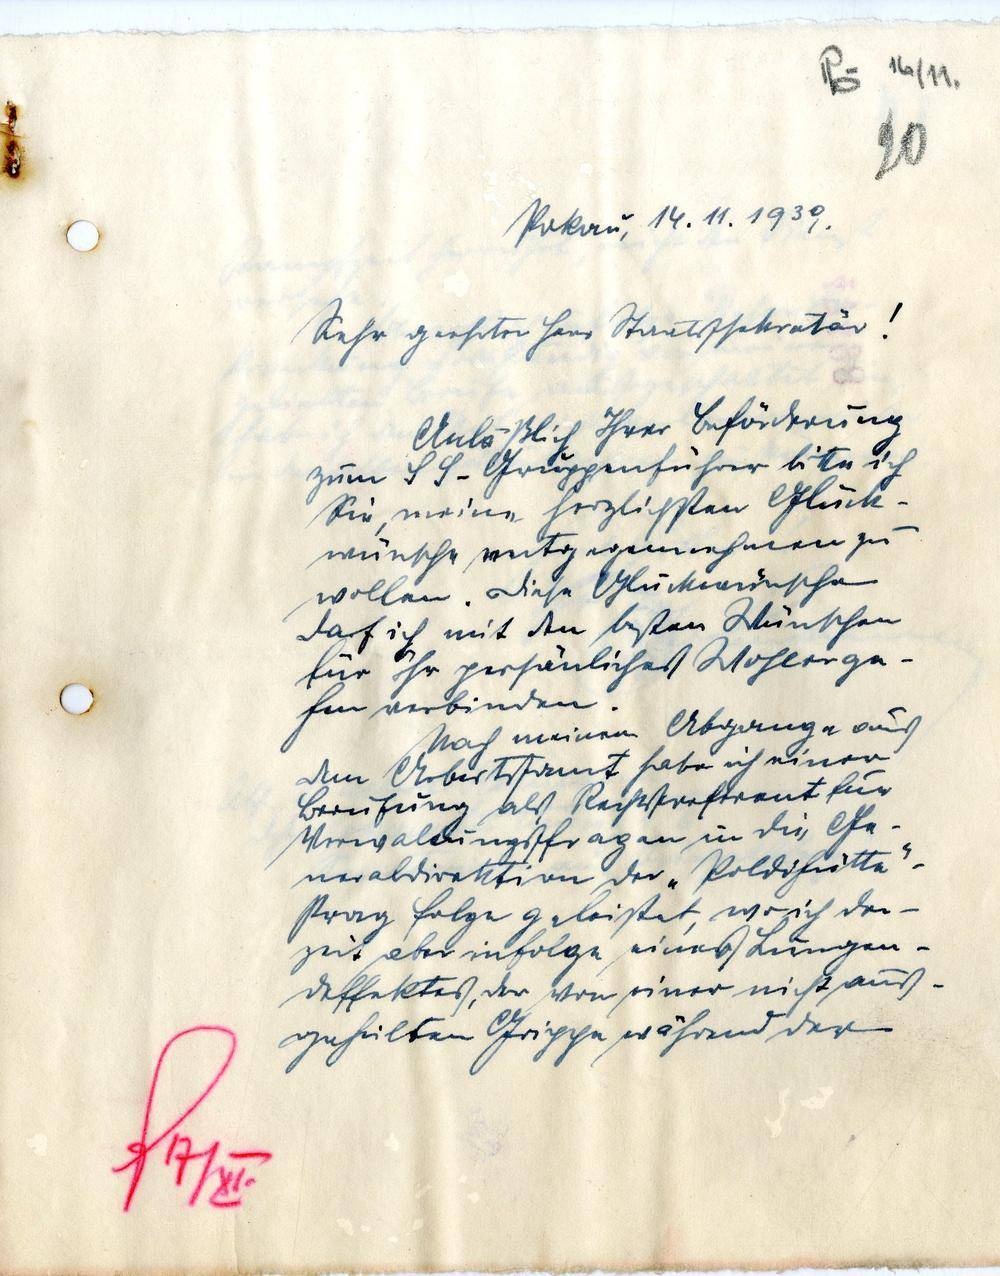 16/11.
20
Pokau, 14. 11. 1939.
Sehr geehrter Herr Staatssekretär!
Anläßlich Ihrer Beförderung
zum SS-Gruppenführer bitte ich
Sie, meine herzlichsten Glück-
wünsche entgegennehmen zu
wollen. Diese Glückwünsche
darf ich mit den besten Wünschen
für Ihr persönliches Wohlerge-
hen verbinden.
Nach meinem Abgange aus
dem Arbeitsamt habe ich einer
Berufung als Rechtsreferent für
Verwaltungsfragen in die Ge-
neraldirektion der „Poldihütte"-
Prag folge geleistet, wo ich der-
zeit aber infolge eines Lungen-
deffektes, der von einer nicht aus-
geheilten Grippe während der
17/XI.